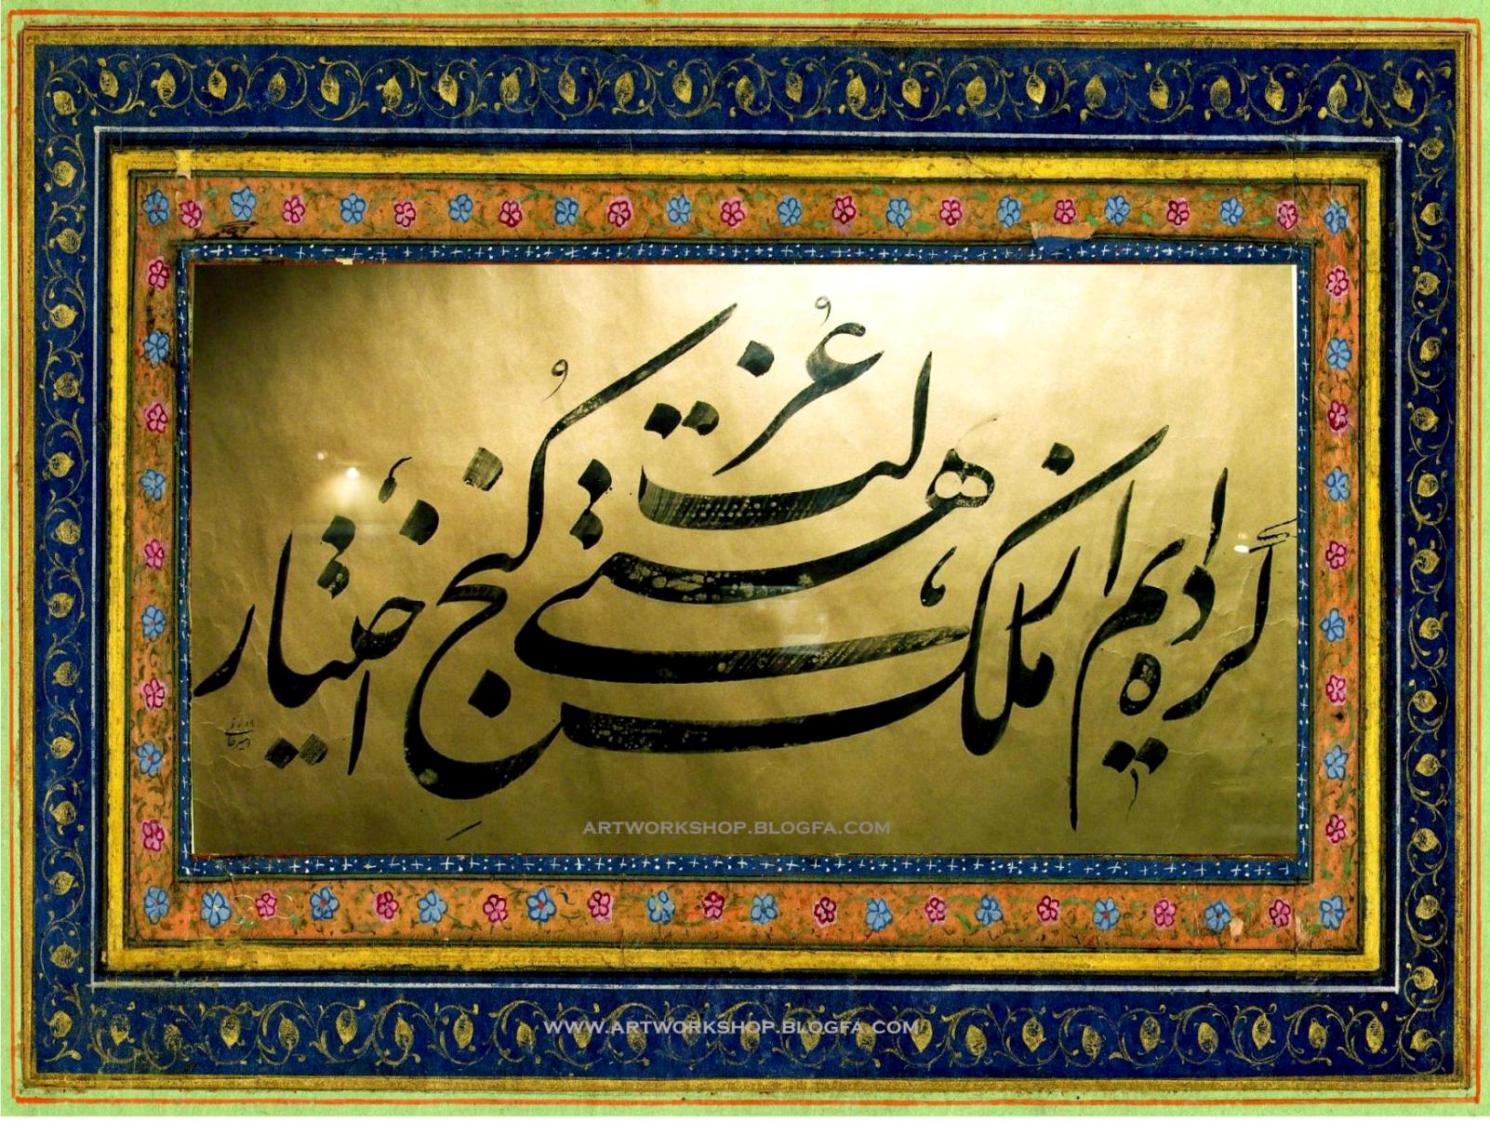 کرده ایم از ملک هستی کنج عزلت اختیار
ARTWORKSHOP.BLOGFA.COM
WWW.ARTWORKSHOP.BLOGFA.COM